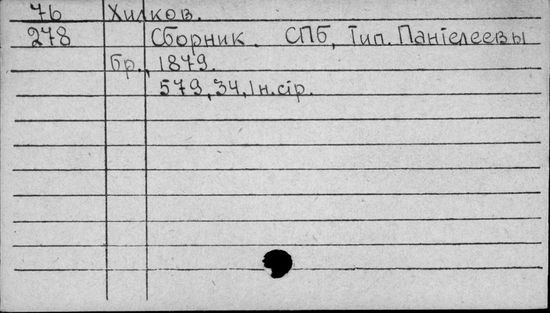 76 Хилков.
278 Сборник. СПб, Тип. Пантелеевы
бр., 1879.
579, 34, 1 н. стр.